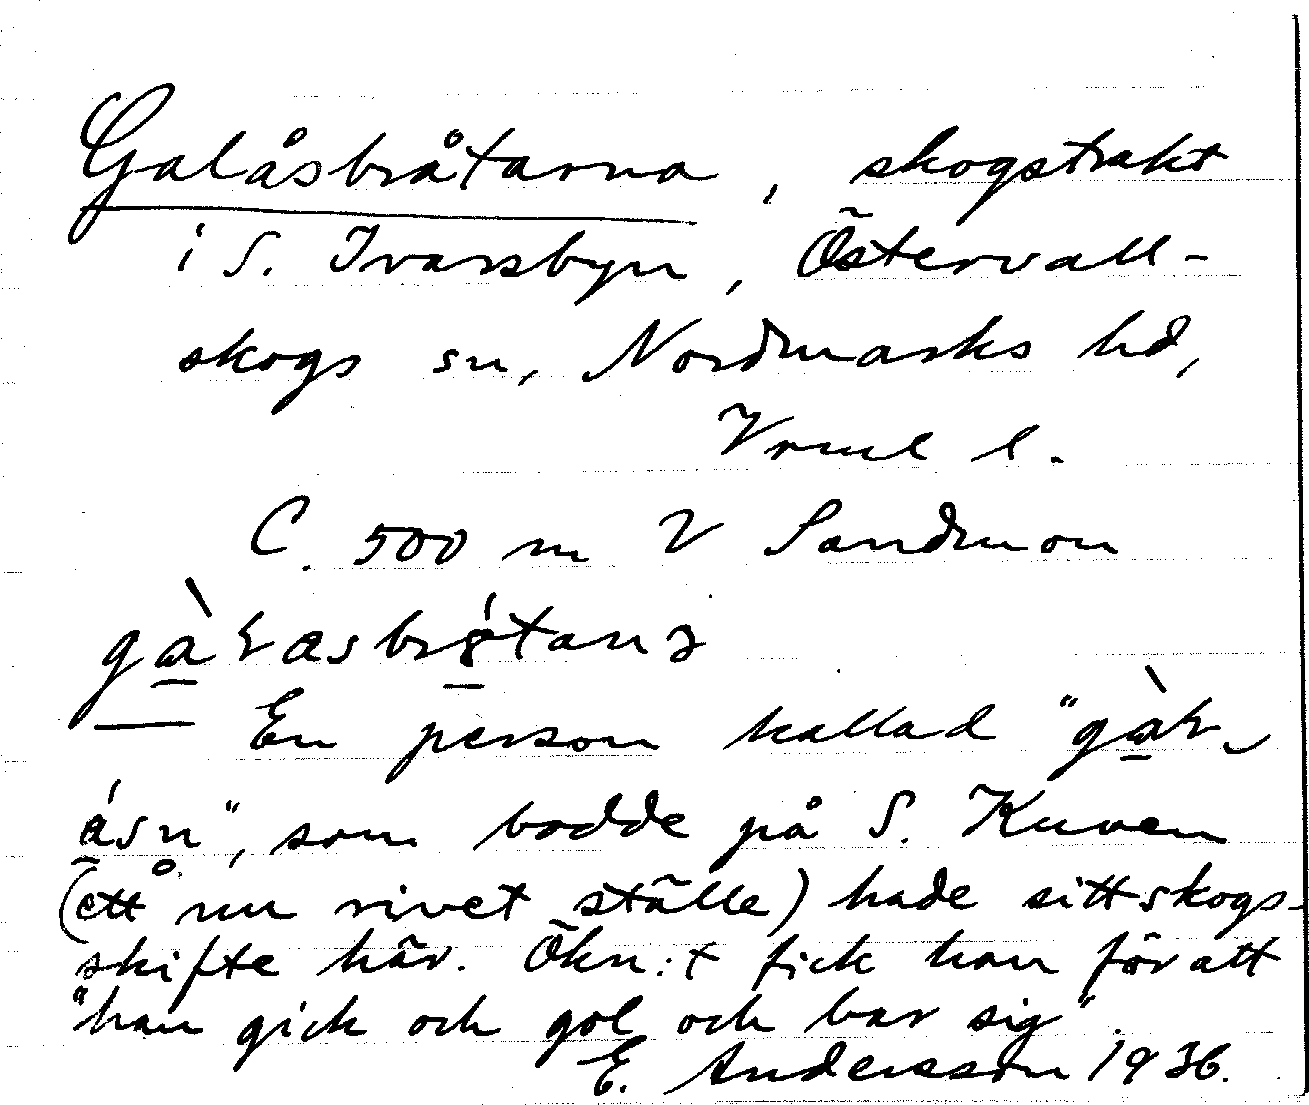 Galåsbråtarna, skogstrakt
i S. Ivarsbyn, Östervall-
skogs sn, Nordmarks hd,
Vrml l.
C. 500 m V Sandmon
En person kallad
som bodde på S. Kuven
(ett nu rivet ställe) hade sitt skogs-
skifte här. Ökn:t fick han för att
"han gick och gol och bar sig".
E. Andersson 1936.